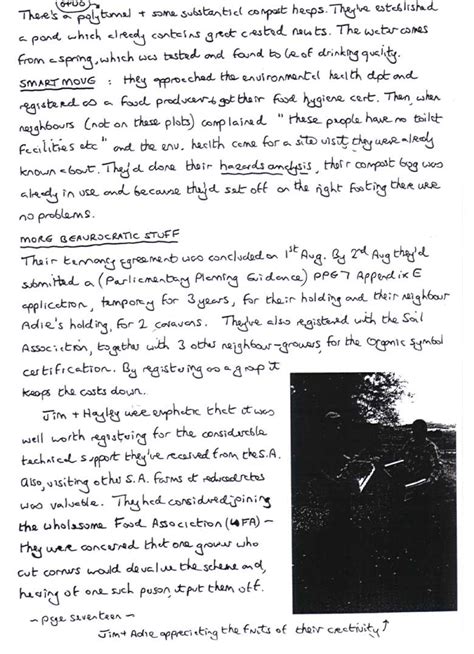 There's a polytunnel + some substantial compost heaps. They've established
a pond which already contains great crested newts. The water comes
from a spring, which was tested and found to be of drinking quality.
SMART MOVE : they approached the environmental health dpt and
registered as a food producer & got their food hygiene cert. Then, when
neighbours (not on these plots) complained "these people have no toilet
facilities etc" and the env. health came for a site visit, they were already
known about. They'd done their hazards analysis, their compost bog was
already in use and because they'd set off on the right footing there were
no problems.
MORE BEAUROCRATIC STUFF
Their tennancy agreement was concluded on 1st Aug. By 2nd Aug they'd
submitted a (Parliamentary Planning Guidance) PPG7 Appendix E
application, temporary for 3 years, for their holding and their neighbour
Adie's holding, for 2 caravans. They've also registered with the Soil
Association, together with 3 other neighbour-growers, for the Organic Symbol
certification. By registering as a group it
keeps the costs down.
Jim + Hayley were emphatic that it was
well worth registering for the considerable
technical support they've received from the S.A.
Also, visiting other S.A. farms at reduced rates
was valuable. They had considered joining
the Wholesome Food Association (WFA) -
they were concerned that one grower who
cut corners would devalue the scheme and,
hearing of one such person, it put them off.
~ page seventeen ~
Jim + Adie appreciating the fruits of their creativity ↑